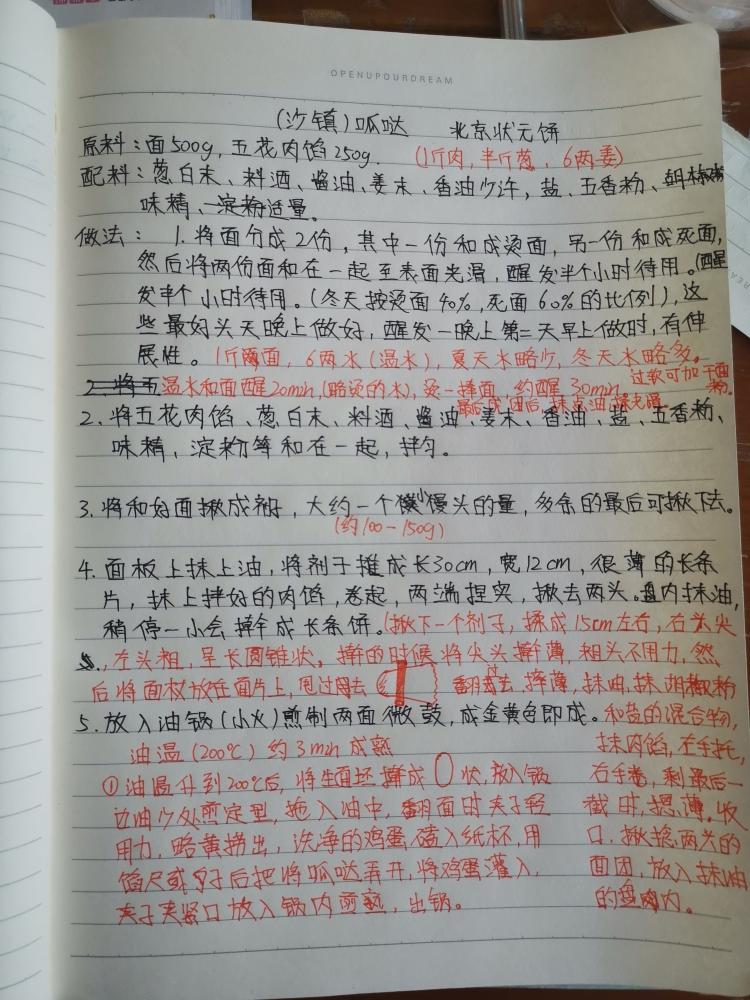 OPENUPOURDREAM
(沙镇)呱哒 北京状元饼
原料:面500g,五花肉馅250g. (1斤肉,半斤葱,6两姜)
配料:葱白末、料酒、酱油、姜末、香油少许,盐、五香粉、胡椒粉
味精、淀粉适量。
做法: 1. 将面分成2份,其中一份和成烫面,另一份和成死面,
然后将两份面和在一起至表面光滑,醒发半个小时待用。(醒
发半个小时待用。(冬天按烫面40%,死面60%的比例),这
些最好头天晚上做好,醒发一晚上第二天早上做时,有伸
展性。 1斤面,6两水(温水),夏天水略少,冬天水略多。
2.将五 温水和面醒20min,(略烫的水),烫一择面,约醒30min 过软可加干面粉。
最后成团后,抹点油揉光滑
2. 将五花肉馅、葱白末、料酒、酱油、姜末、香油、盐、五香粉、
味精,淀粉等和在一起,拌匀。
3. 将和好面揪成剂子,大约一个小馒头的量,多余的最后可揪下去。
(约100-150g)
4. 面板上抹上油,将剂子擀成长30cm,宽12cm,很薄的长条
片,抹上拌好的肉馅,卷起,两端捏实,揪去两头。盘内抹油,
稍停一小会擀成长条饼。(揪下一个剂子,揉成15cm左右,右头尖
,左头粗,呈长圆锥状。擀的时候将尖头擀薄,粗头不用力,然
后将面杖放在面片上,甩过去 翻过去,擀薄,抹油,抹胡椒粉
5. 放入油锅(小火)煎制两面微鼓,成金黄色即成。和盐的混合物,
油温(200℃)约3min成熟 抹肉馅,左手托,
①油温升到200℃后,将生面坯擀成 状,放入锅 右手卷,剩最后一
边油少处煎定型,拖入油中,翻面时夹子轻 截时,摁薄,收
用力,略黄捞出,洗净的鸡蛋磕入纸杯,用 口,揪捻两头的
馅尺或 子后把将呱哒弄开,将鸡蛋灌入, 面团,放入抹油
夹子夹紧口放入锅内煎熟,出锅。 的盘内。